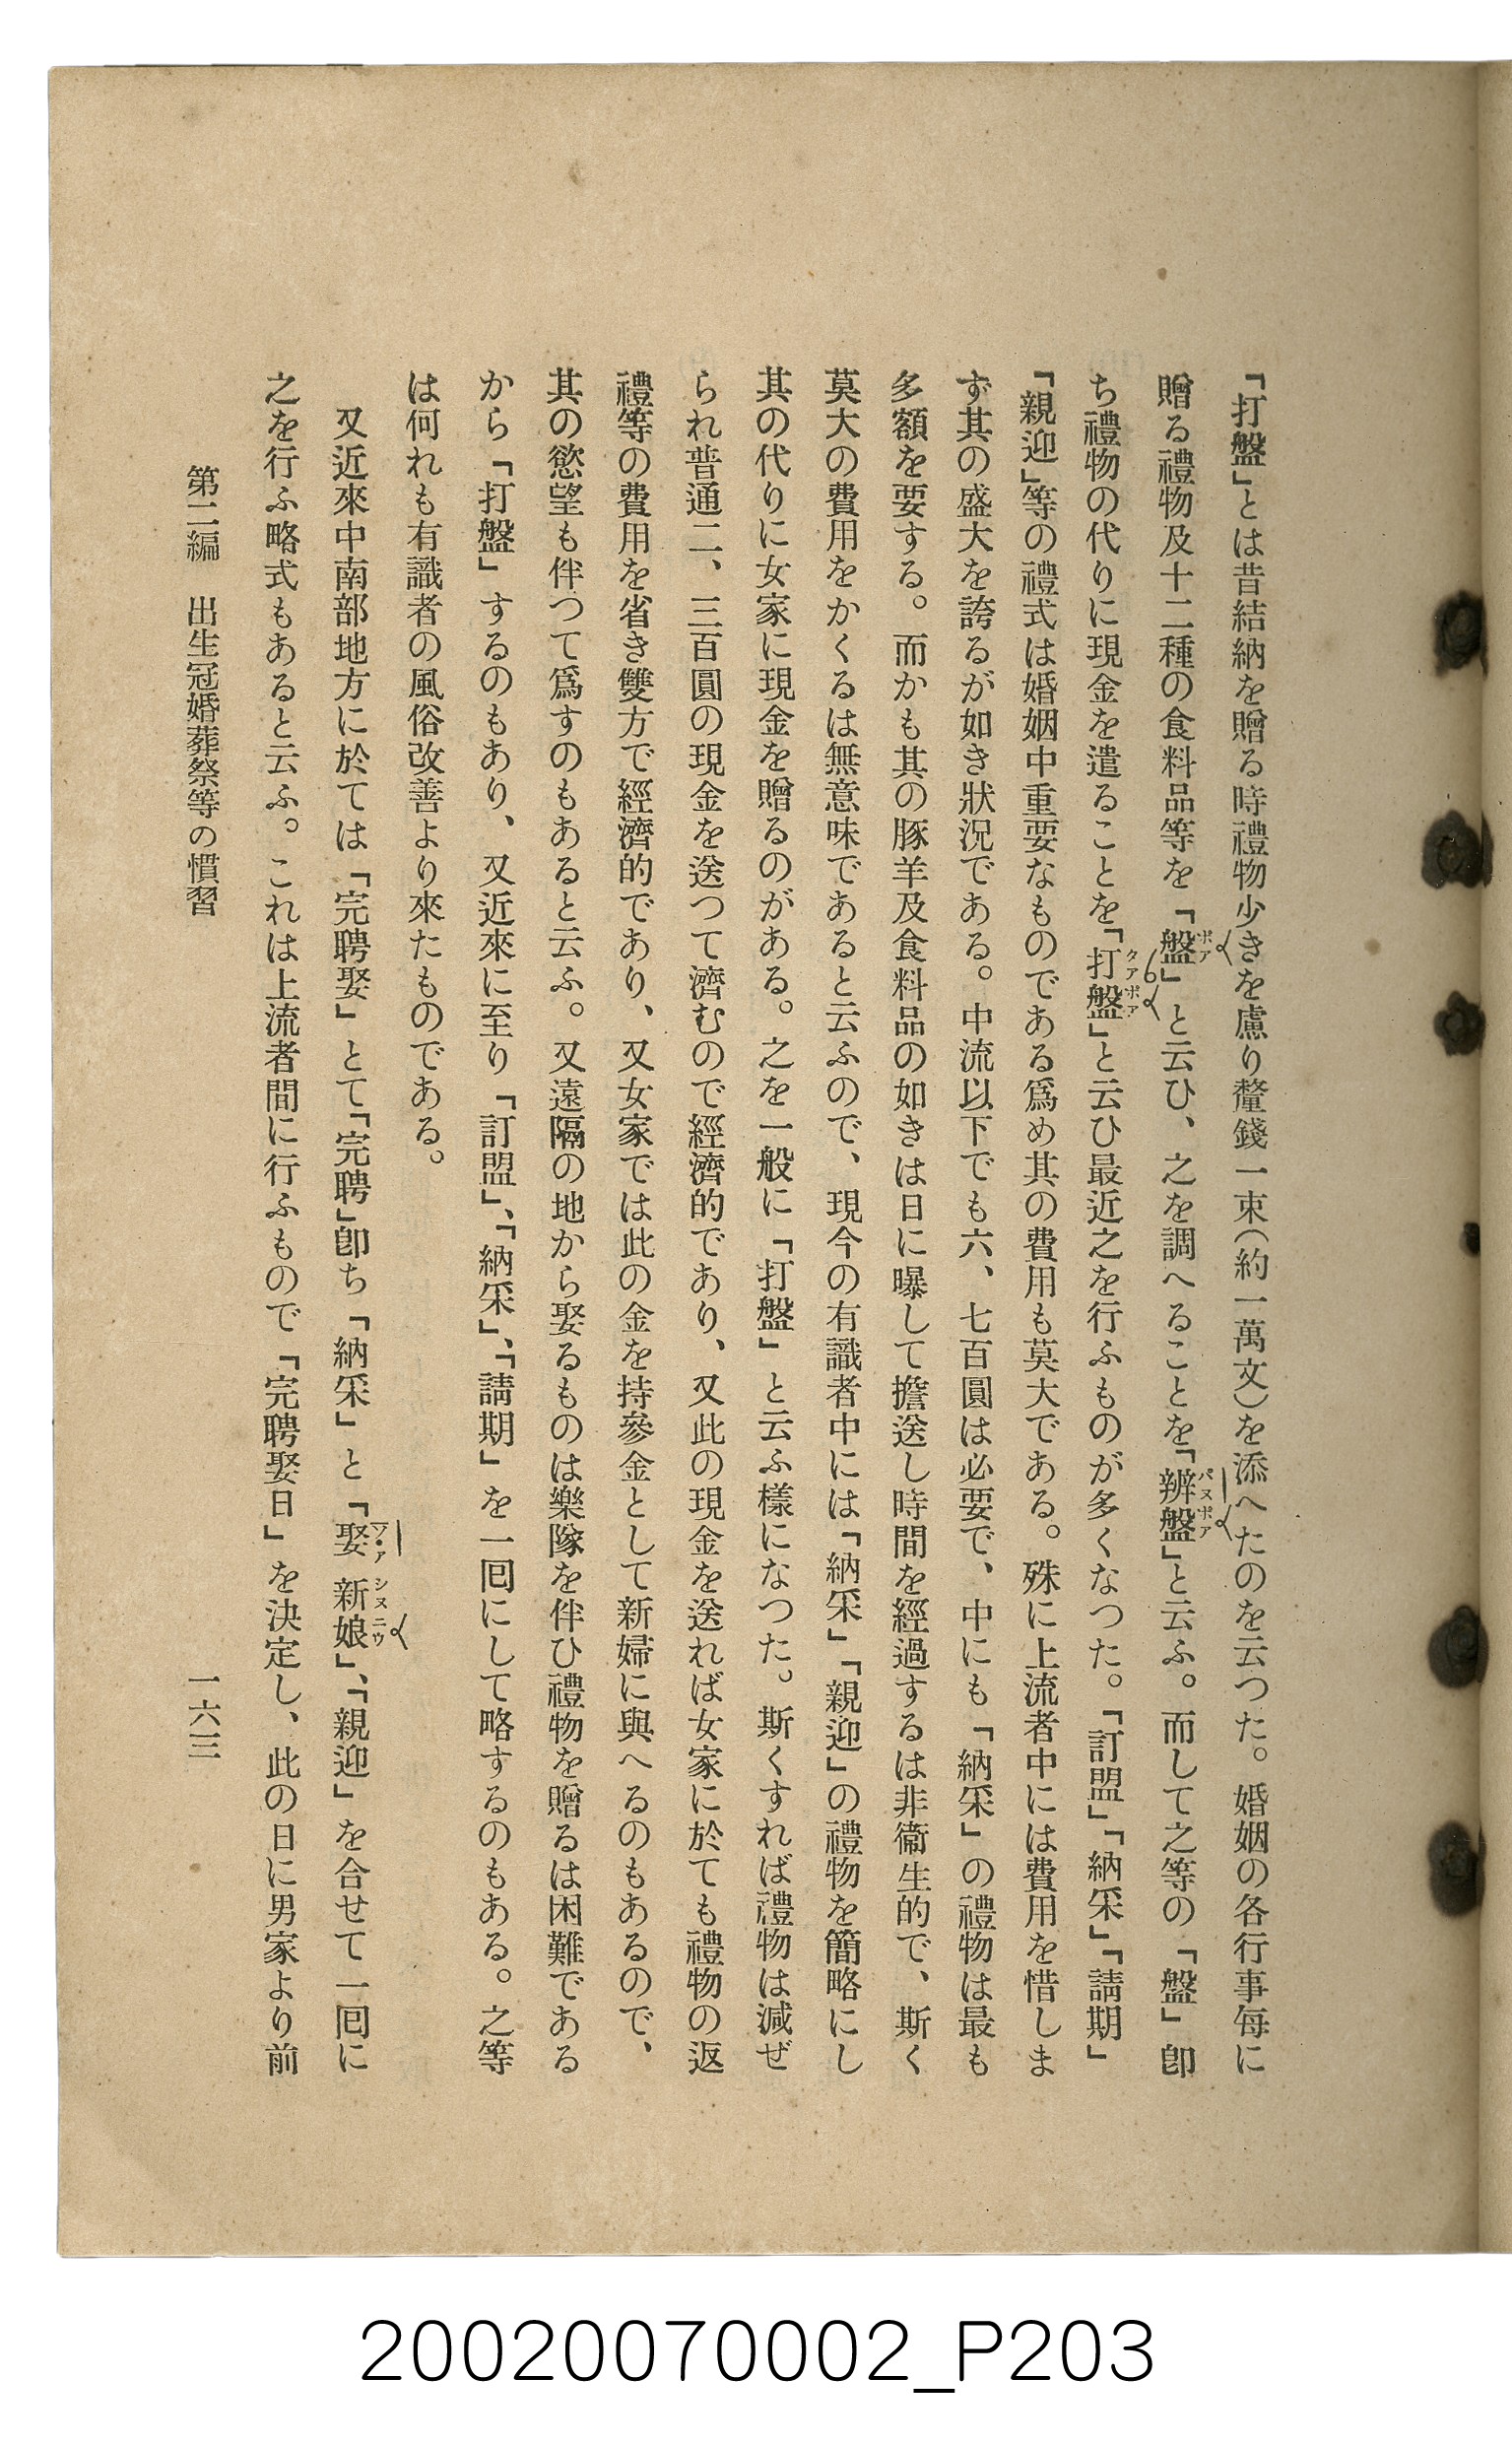 「打盤」とは昔結納を贈る時禮物少きを慮り釐錢一束(約一萬文)を添へたのを云つた。婚姻の各行事每に
贈る禮物及十二種の食料品等を「盤」と云ひ、之を調へることを「辨盤」と云ふ。而して之等の「盤」卽
ち禮物の代りに現金を遣ることを「打盤」と云ひ最近之を行ふものが多くなつた。「訂盟」「納采」「請期」
「親迎」等の禮式は婚姻中重要なものである爲め其の費用も莫大である。殊に上流者中には費用を惜しま
ず其の盛大を誇るが如き狀況である。中流以下でも六、七百圓は必要で、中にも「納采」の禮物は最も
多額を要する。而かも其の豚羊及食料品の如きは日に曝して擔送し時間を經過するは非衞生的で、斯く
莫大の費用をかくるは無意味であると云ふので、現今の有識者中には「納采」「親迎」の禮物を簡略にし
其の代りに女家に現金を贈るのがある。之を一般に「打盤」と云ふ樣になつた。斯くすれば禮物は減ぜ
られ普通二、三百圓の現金を送つて濟むので經濟的であり、又此の現金を送れば女家に於ても禮物の返
禮等の費用を省き雙方で經濟的であり、又女家では此の金を持參金として新婦に與へるのもあるので、
其の慾望も伴つて爲すのもあると云ふ。又遠隔の地から娶るものは樂隊を伴ひ禮物を贈るは困難である
から「打盤」するのもあり、又近來に至り「訂盟」、「納采」、「請期」を一囘にして略するのもある。之等
は何れも有識者の風俗改善より來たものである。
又近來中南部地方に於ては「完聘娶」とて「完聘」卽ち「納采」と「娶新娘」、「親迎」を合せて一囘に
之を行ふ略式もあると云ふ。これは上流者間に行ふもので「完聘娶日」を決定し、此の日に男家より前
第二編 出生冠婚葬祭等の慣習 一六三
20020070002_P203